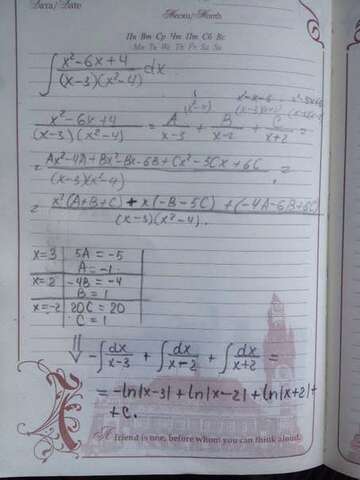 Дата/Date
Месяц/Month
Пн Вт Ср Чт Пт Сб Вс
Mo Tu We Th Fr Sa Su
∫ (x²-6x+4)/((x-3)(x²-4)) dx
(x²-6x+4)/((x-3)(x²-4)) = A/(x-3) + B/(x-2) + C/(x+2) =
= (Ax²-4A+Bx²-Bx-6B+Cx²-5Cx+6C)/((x-3)(x²-4)) =
= (x²(A+B+C) + x(-B-5C) + (-4A-6B+6C))/((x-3)(x²-4)).
x=3 | 5A = -5
A = -1
x=2 | -4B = -4
B = 1
x=-2 | 20C = 20
C = 1
⇓ -∫ dx/(x-3) + ∫ dx/(x-2) + ∫ dx/(x+2) =
= -ln|x-3| + ln|x-2| + ln|x+2| +
+C.
A friend is one, before whom you can think aloud.